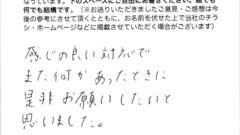 なっています。下のスペースにご自由にお書きください。絵でも
何でも結構です。（※お送りいただきましたご意見・ご感想は今
後の参考にさせて頂くとともに、お名前を伏せた上で当社のチラ
シ・ホームページなどに掲載させていただく場合がございます）
感じの良い対応で
また何かあったときに
是非お願いしたいと
思いました。